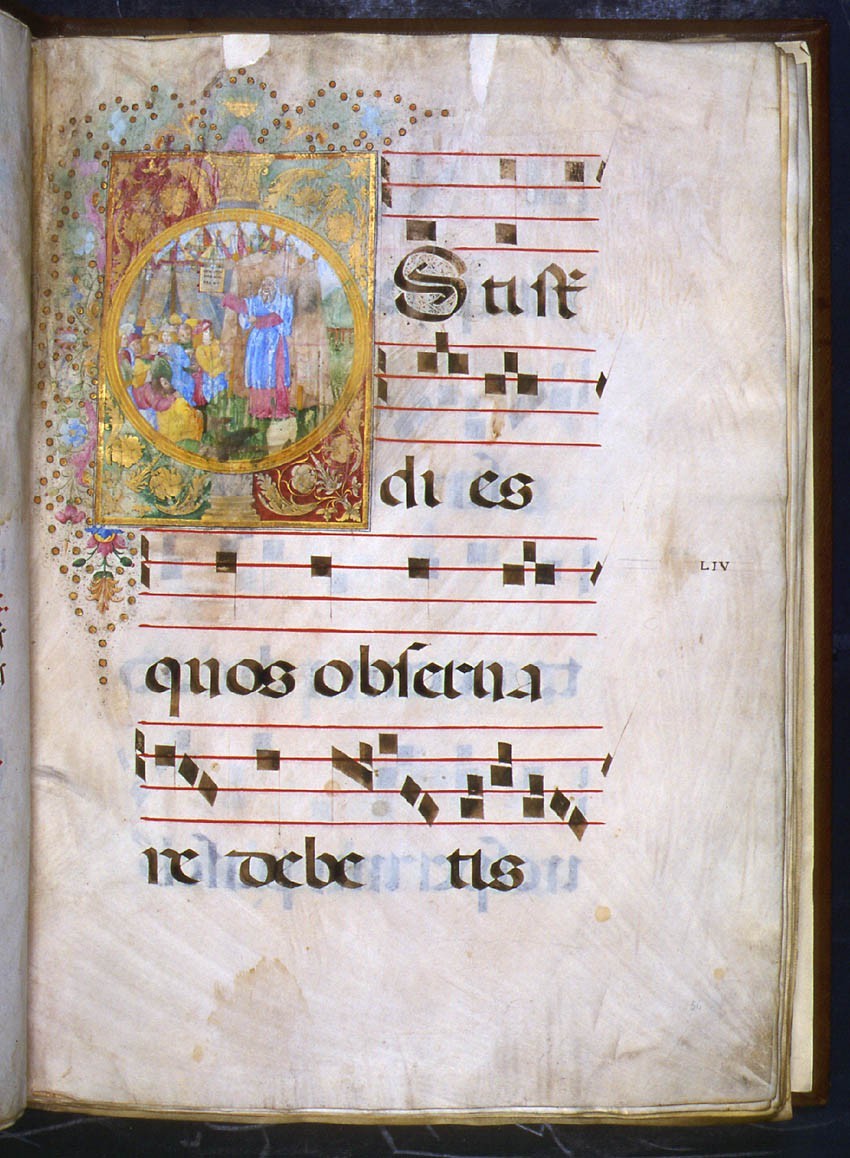 ISti ſt
di es
LIV
quos obſerua
re debe tis